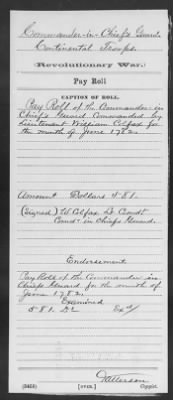 Commander-in-Chief's Guard,
Continental Troops.
(Revolutionary War.)
Pay Roll
CAPTION OF ROLL.
Pay Roll of the Commander in
Chief's Guard Commanded by
Lieutenant William Colfax for
the month of June 1782.
Amount Dollars 581.
(Signed) W Colfax Lt Comdt
Comdr in Chief's Guard.
Endorsement
Pay Roll of the Commander in
Chief's Guard for the month of
June 1782.
Examined
581. Dr Exd
Patterson
(545i) [OVER.] Copyist.